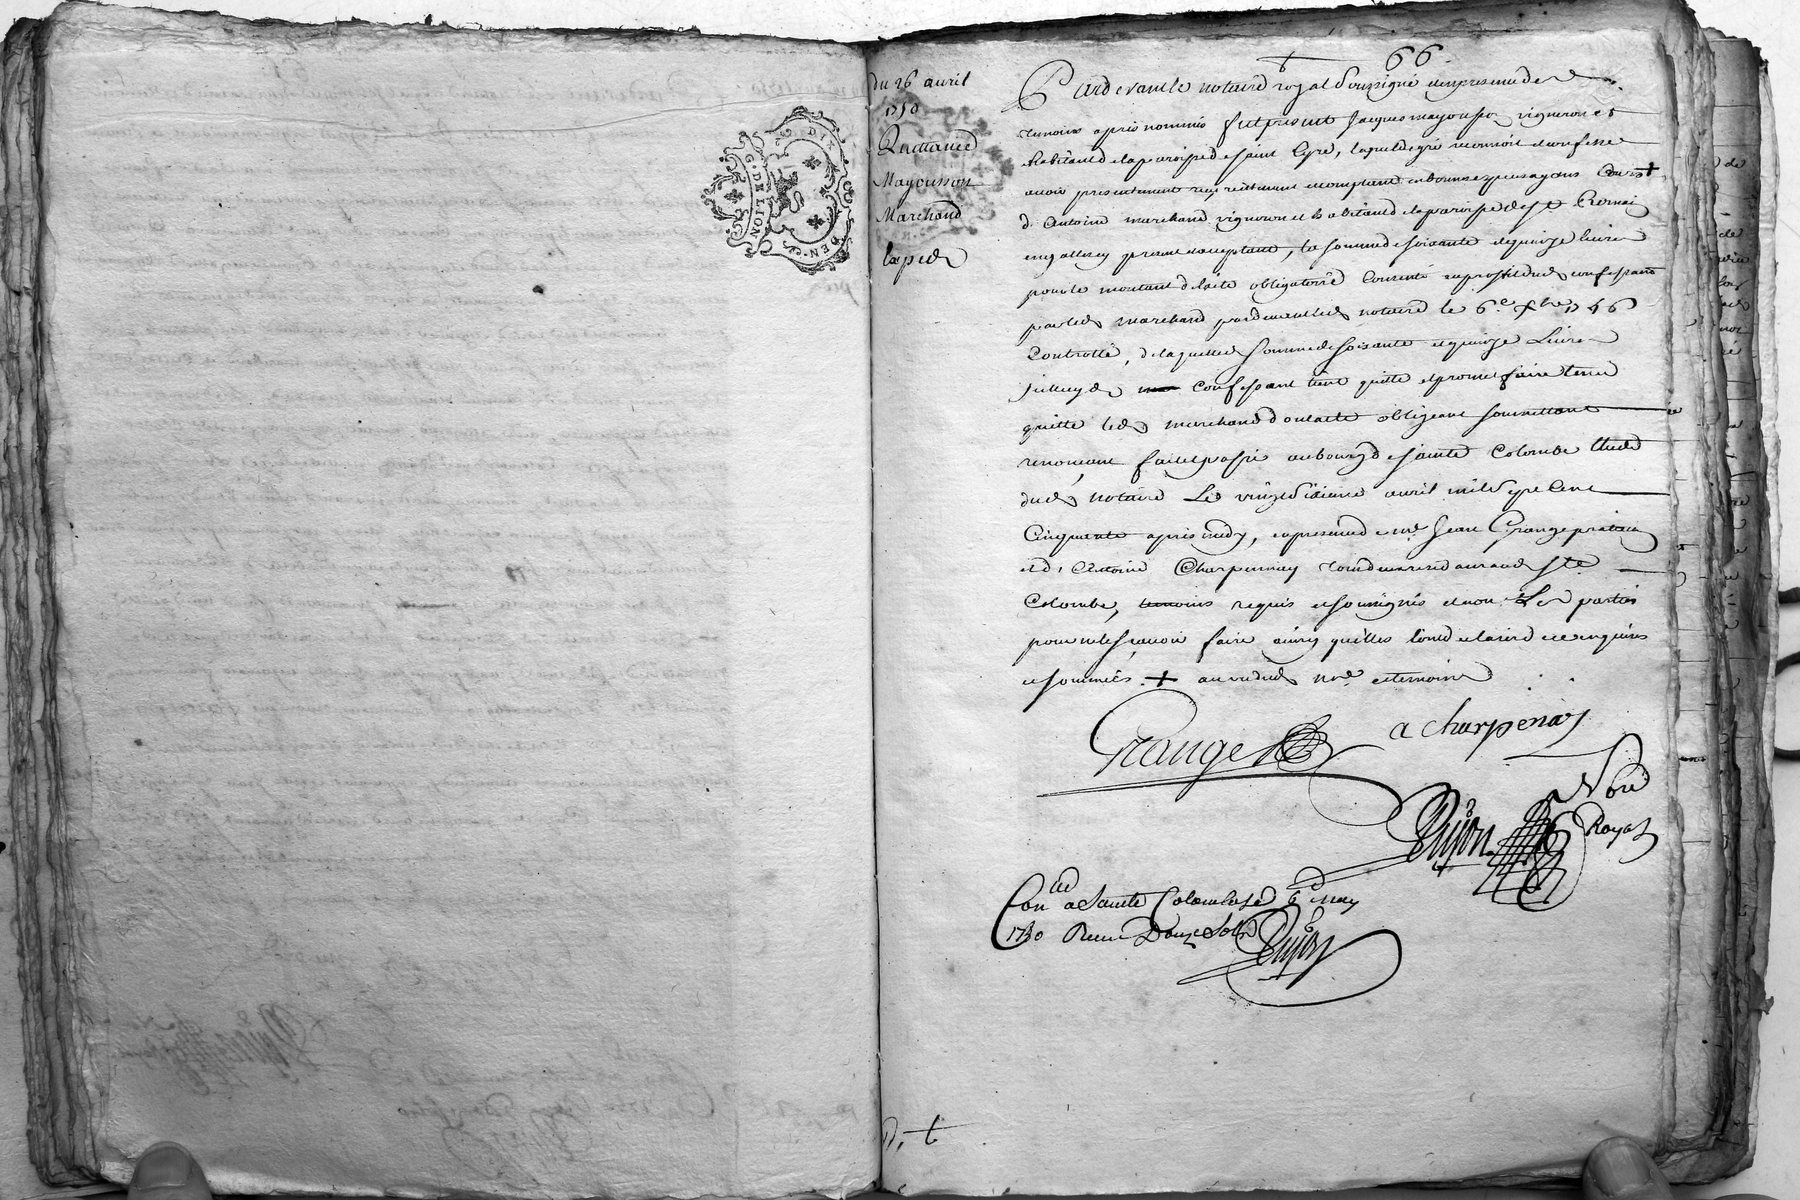 66
du 26 avril
1750
Quittance
Mayousson
Marchand
DIX
DEN.
G. DE LION
Pardevant le notaire royal soussigné en presence des
temoins apres nommés fut present Jacques mayousson vigneron et
habitant de la paroisse de saint Cyre, lequel de gré reconnoit et confesse
avoir presentement reçu reellement et comptant en bonnes especes ayant cours +
d'Antoine marchand vigneron et habitant de la paroisse de st Romain
en gallerey present et acceptant, la somme de soixante et quinze livres
pour le montant de l'acte obligatoire consenti au profit dud confessant
par led marchand pardevant led notaire le 6e xbre 1746
Controllé, de laquelle somme de soixante et quinze livres
confessant tient quitte et promet faire tenir
quitte led marchand dont acte obligeant soumettant
renonçant fait et passé au bourg de sainte Colombe etude
dud notaire Le vingt sixieme avril mil sept cent
Cinquante apres midy, en presence de me Jean Grange praticien
et d'Antoine Charpennay demeurants aud Ste
Colombe, temoins requis et soussignés et non Les parties
pour ne le sçavoir faire ainsy qu'elles l'ont declaré de ce enquises
et sommées. + au vu dud nre et temoins
Grange
a charpenay
Dujon Nore
Royal
Conlé a Sainte Colombe le 6 may
1750 Receu Douze sols
Dujon